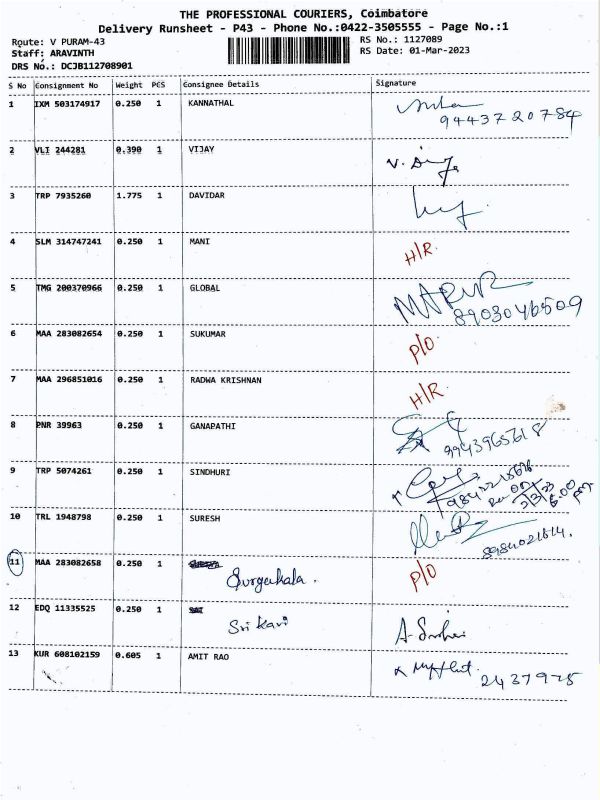 THE PROFESSIONAL COURIERS, Coimbatore
Delivery Runsheet - P43 - Phone No.:0422-3505555 - Page No.:1
Route: V PURAM-43
RS No.: 1127089
Staff: ARAVINTH
RS Date: 01-Mar-2023
DRS No.: DCJB112708901
S No Consignment No Weight PCS Consignee Details Signature
1 IXM 503174917 0.250 1 KANNATHAL
9443720784
2 VLI 244281 0.390 1 VIJAY
3 TRP 7935260 1.775 1 DAVIDAR
4 SLM 314747241 0.250 1 MANI H/R.
5 TMG 200370966 0.250 1 GLOBAL
8903046509
6 MAA 283082654 0.250 1 SUKUMAR P/O
7 MAA 296851016 0.250 1 RADWA KRISHNAN H/R.
8 PNR 39963 0.250 1 GANAPATHI
9943965618
9 TRP 5074261 0.250 1 SINDHURI
10 TRL 1948798 0.250 1 SURESH
11 MAA 283082658 0.250 1 P/O
12 EDQ 11335525 0.250 1
Sri Kari
13 KUR 608102159 0.605 1 AMIT RAO
2437975